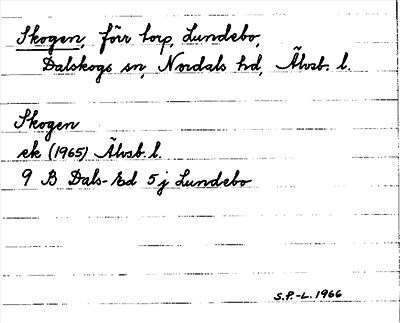 Skogen, förr torp, Lundebo,
Dalskogs sn, Nordals hd, Älvsb. l.
Skogen
ek (1965) Älvsb. l.
9 B Dals-Ed 5 j Lundebo
S.P.-L. 1966